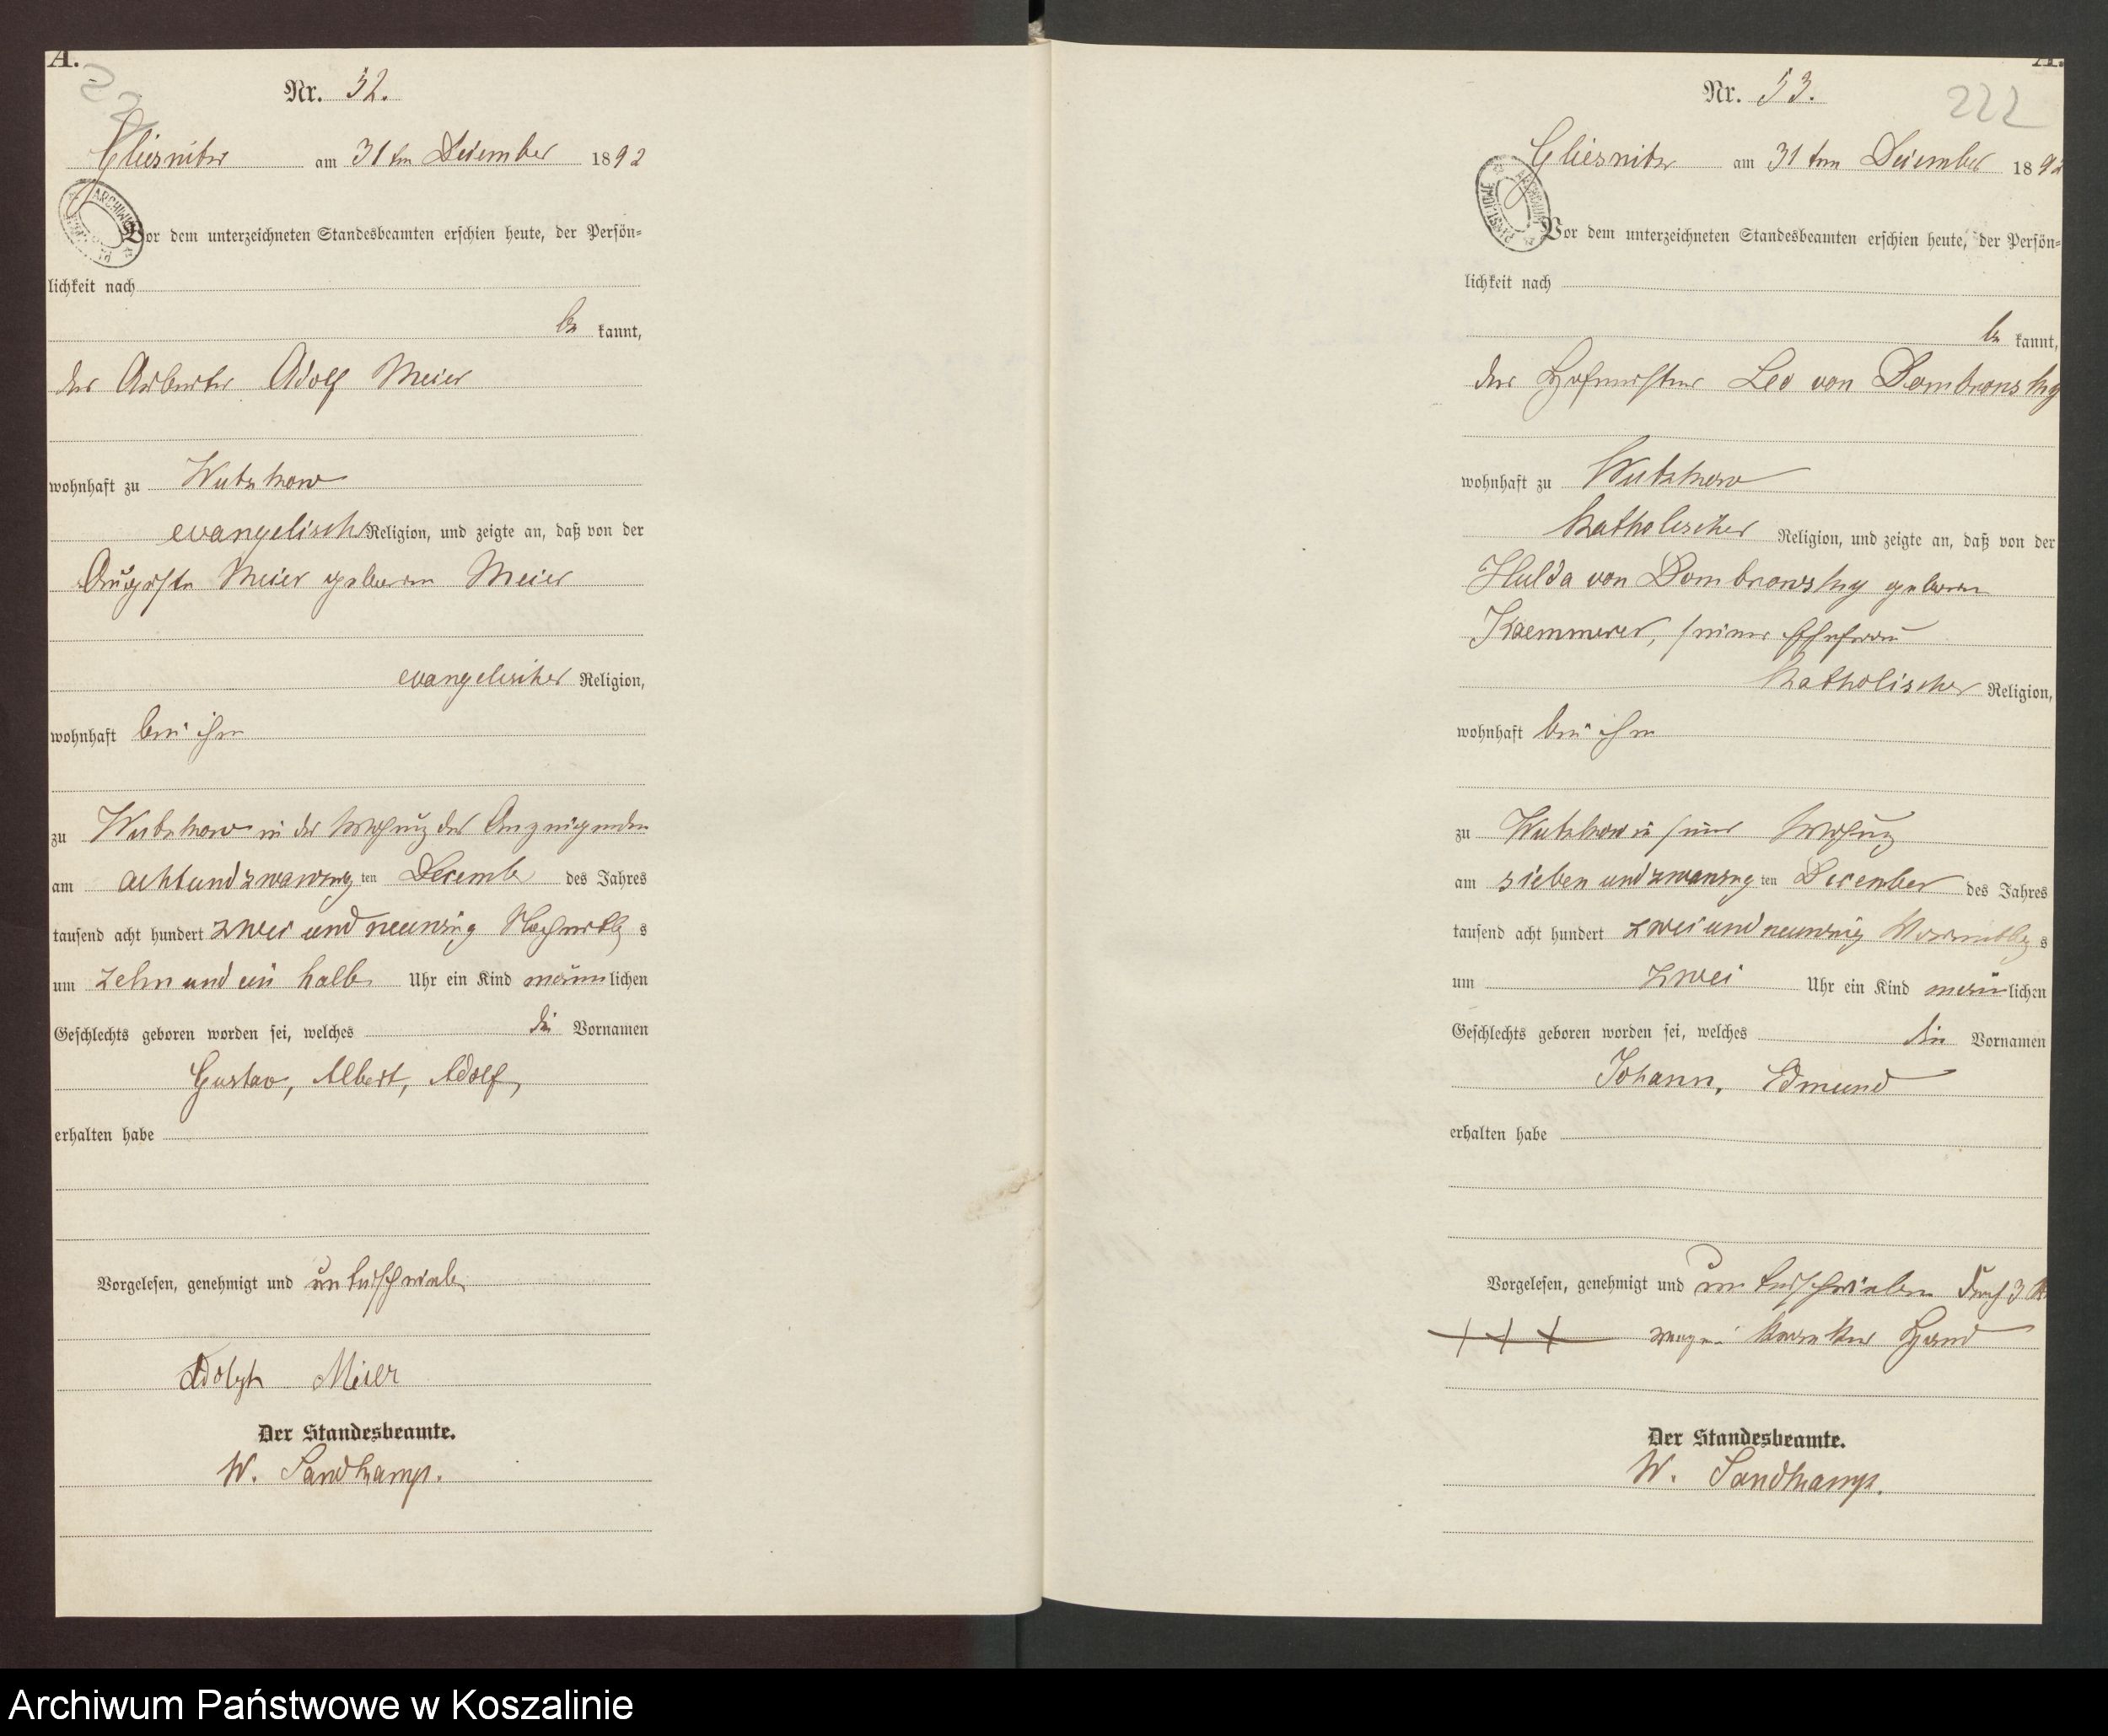 A.
Nr. 52.
Gliesnitz am 31ten December 1892
Vor dem unterzeichneten Standesbeamten erschien heute, der Persön=
lichkeit nach
be kannt,
der Arbeiter Adolf Meier
wohnhaft zu Wutzkow
evangelischer Religion, und zeigte an, daß von der
Auguste Meier geboren Meier
evangelischer Religion,
wohnhaft bei ihm
zu Wutzkow in der Wohnung des Anzeigenden
am achtundzwanzig ten December des Jahres
tausend acht hundert zwei und neunzig Nachmittag s
um zehn und ein halb Uhr ein Kind männ lichen
Geschlechts geboren worden sei, welches die Vornamen
Gustav, Albert, Adolf,
erhalten habe
Vorgelesen, genehmigt und unterschrieben
Adolph Meier
Der Standesbeamte.
W. Sandkamp.
A.
222
Nr. 53.
Gliesnitz am 31ten December 1892
Vor dem unterzeichneten Standesbeamten erschien heute, der Persön=
lichkeit nach
be kannt,
der Hofmeister Leo von Dombrowsky
wohnhaft zu Wutzkow
katholischer Religion, und zeigte an, daß von der
Hulda von Dombrowsky geboren
Kaemmerer, seiner Ehefrau
katholischer Religion,
wohnhaft bei ihm
zu Wutzkow in seiner Wohnung
am sieben und zwanzig ten December des Jahres
tausend acht hundert zwei und neunzig Vormittag s
um zwei Uhr ein Kind männ lichen
Geschlechts geboren worden sei, welches die Vornamen
Johann, Edmund
erhalten habe
Vorgelesen, genehmigt und unterschrieben durch 3
+++ wegen kranker Hand
Der Standesbeamte.
W. Sandkamp.
Archiwum Państwowe w Koszalinie